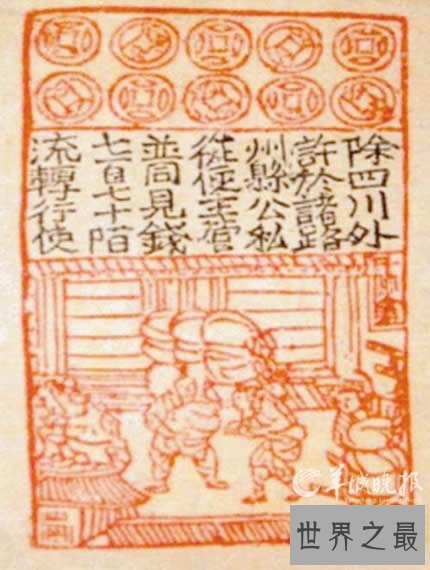 除四川外
許於諸路
州縣公私
從便主管
並同見錢
七百七十陌
流轉行使
羊城晚报
世界之最